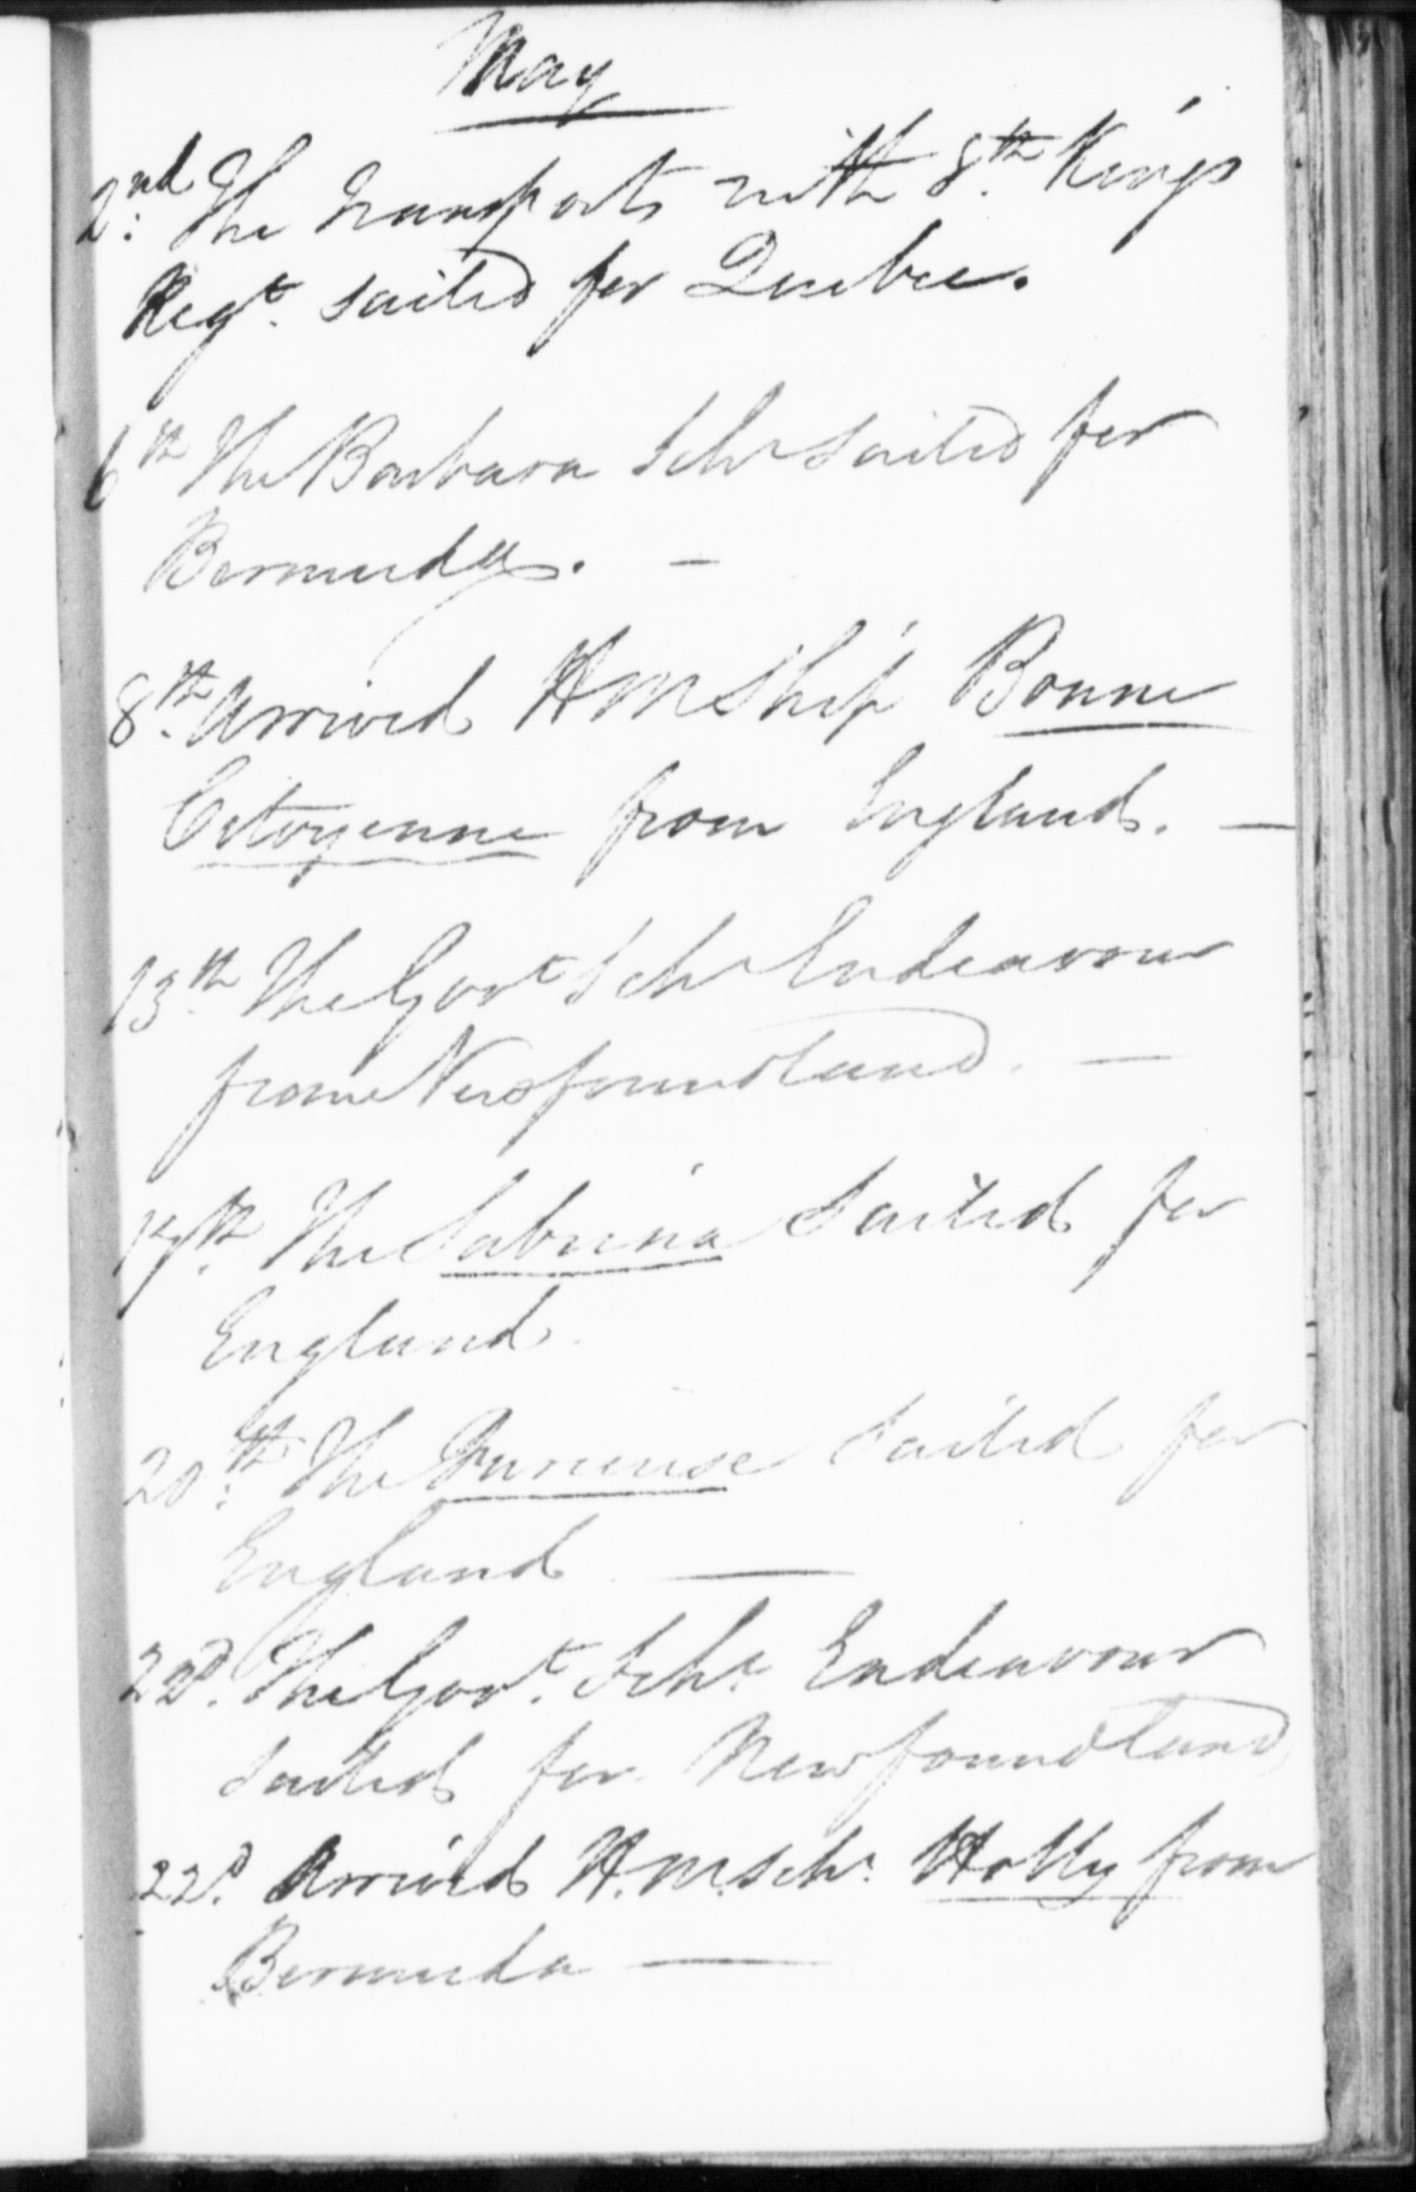 May
2nd. The Transports with 8th King's
Regt. sailed for Quebec.
6th The Barbara Schr sailed for
Bermuda. —
8th. Arrived H M Ship Bonne
Citoyenne from England. —
13th The Govt Schr Endeavour
from Newfoundland. —
17th. The Sabrina Sailed for
England.
20th. The Furieuse Sailed for
England —
22d. The Govt. Schr. Endeavour
Sailed for Newfoundland
22d. Arrived H. M. Schr. Holly from
Bermuda —